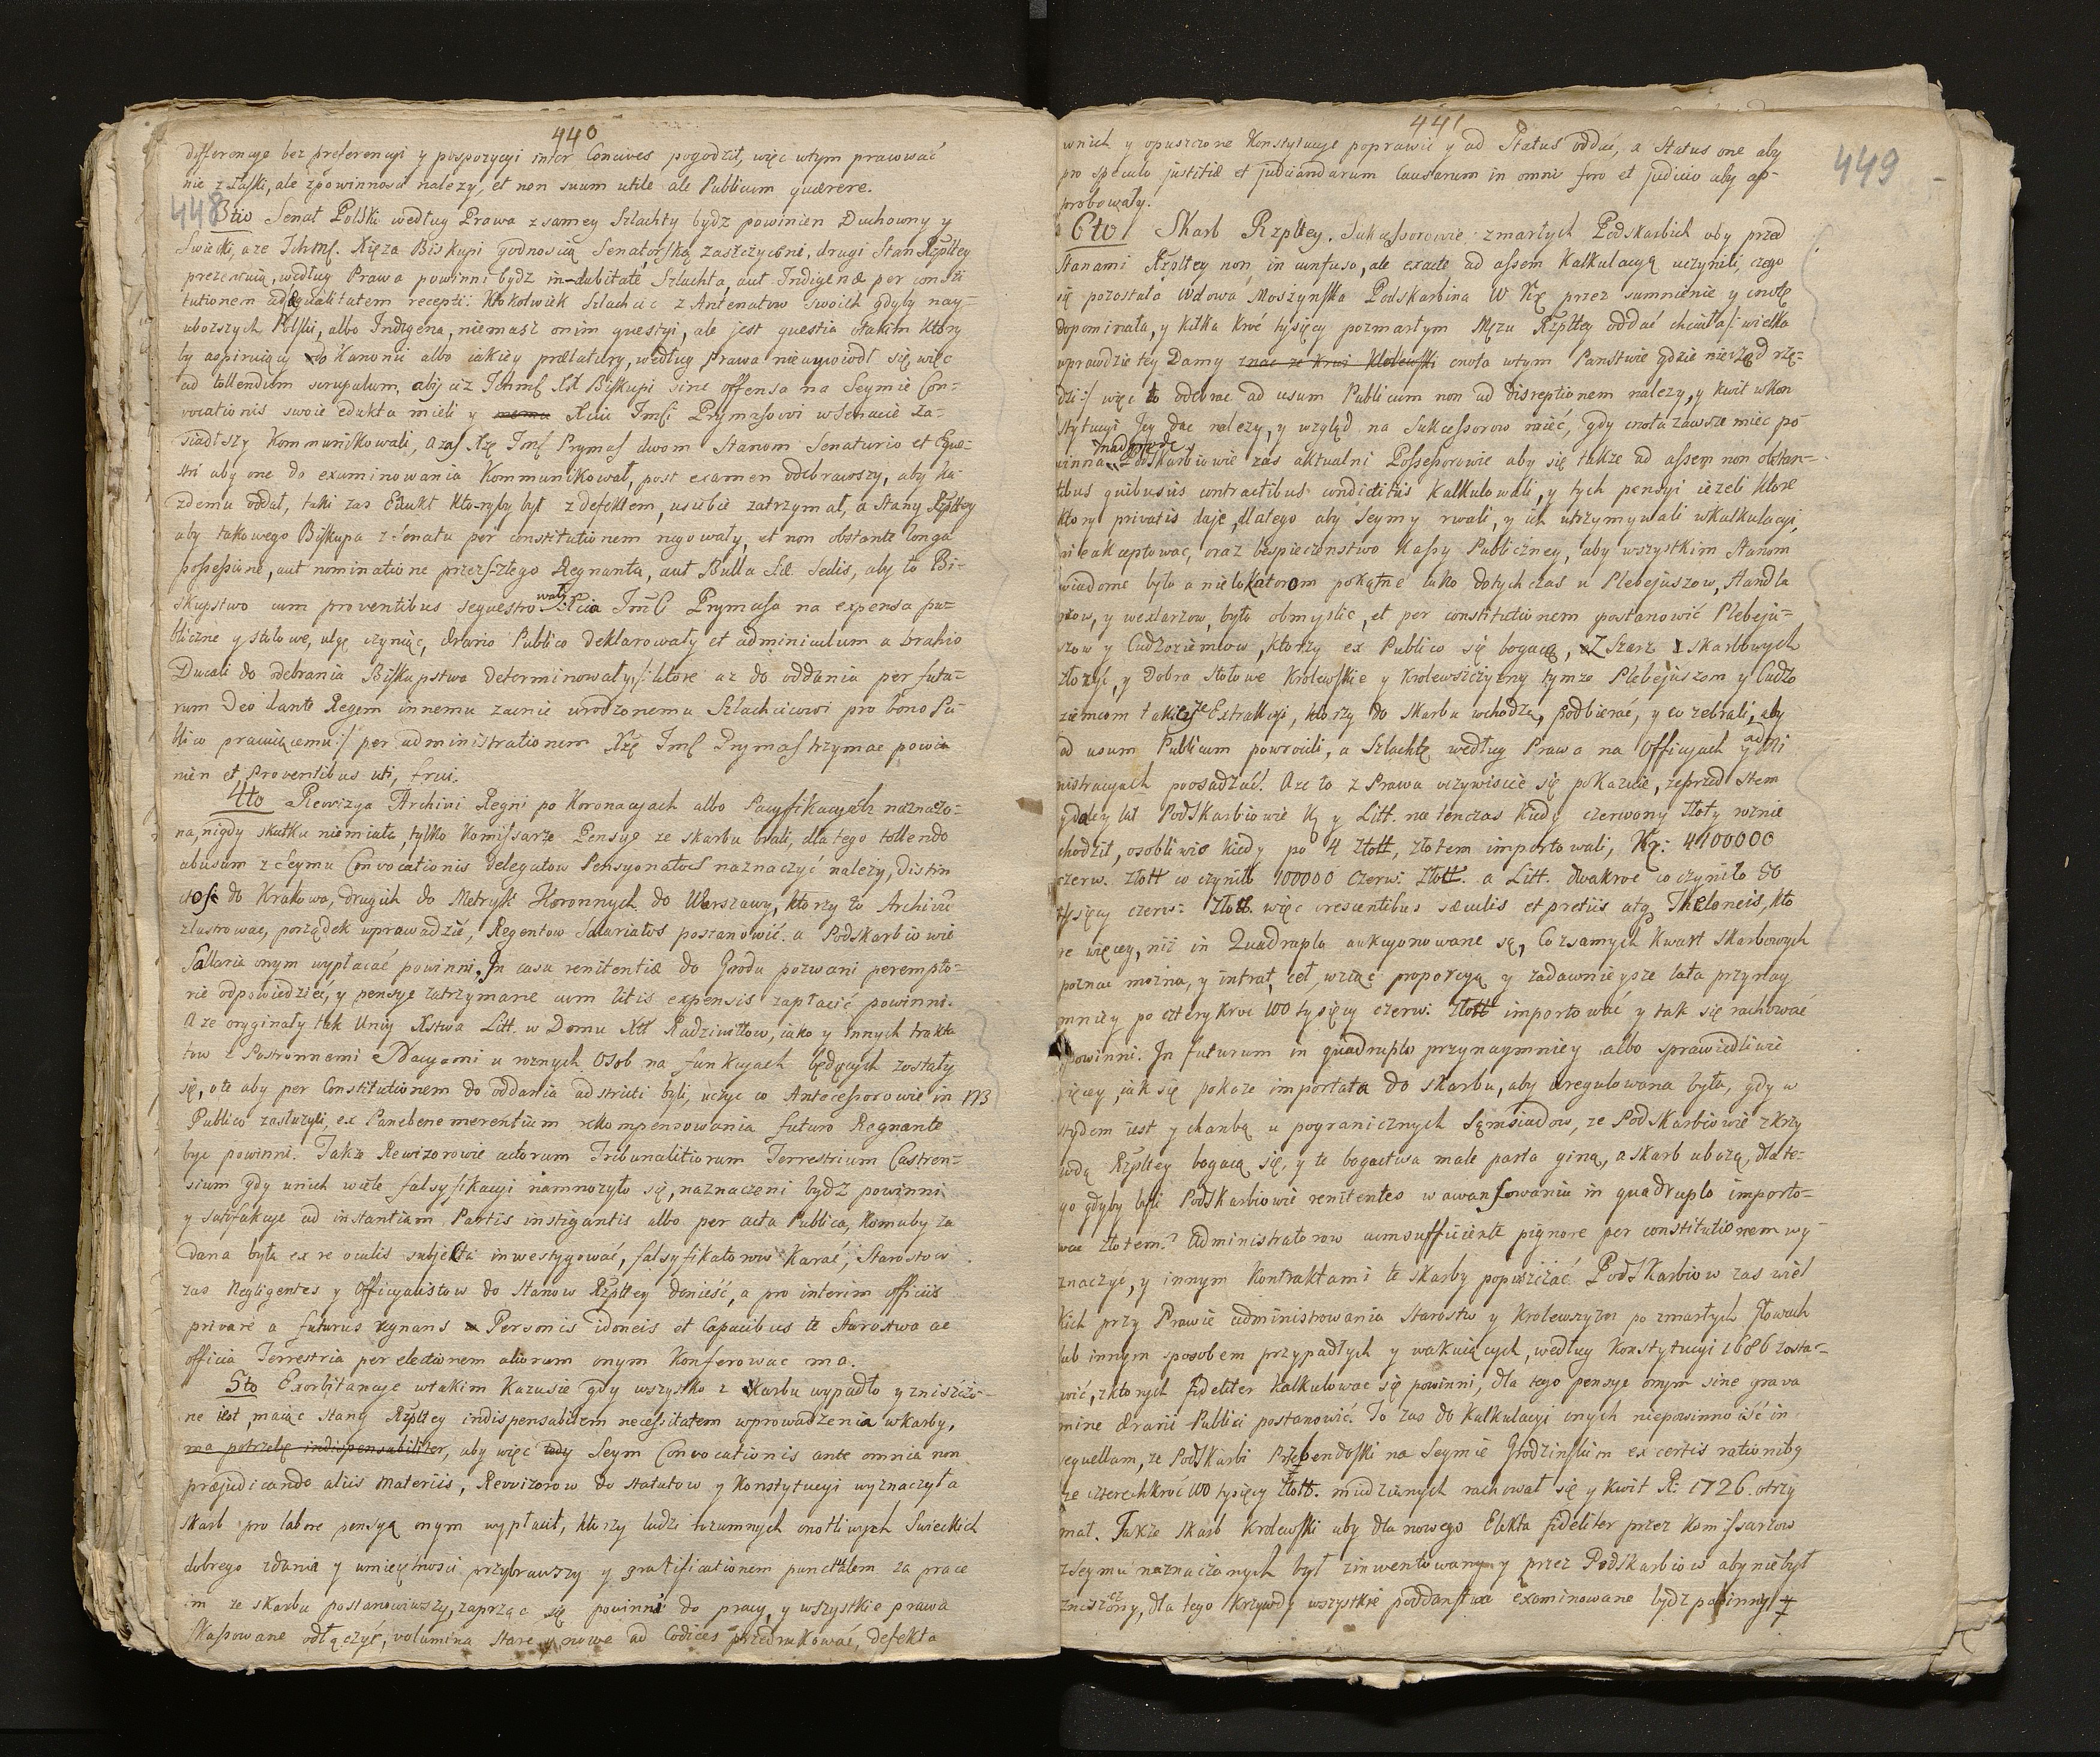 440
differencye bez preferencyi y pospozycyi inter Concives pogodził, więc wtym prawować
nie z łaski, ale zpowinnosci nalezy, et non suum utile ale Publicum quærere.
448
3tio Senat Polski według Prawa z samey Szlachty bydz powinien Duchowny y
Swiecki, aze Ichmć. Xięza Biskupi godnoscią Senatorską zaszczyceni, drugi Stan Rzpltey
prezentuią, według Prawa powinni bydz in-dubitatè Szlachta, aut Indigenæ per consti
tutionem ad æqualitatem recepti: Ktokolwiek Szlachcic z Antenatow swoich gdyby nay-
ubozszych Polski, albo Indigena, niemasz onim questyi, ale jest questia otakim ktory
by aspiruiący do Kanonii albo iakiey prælatury, według Prawa niewywiodł się, więc
ad tollendum scrupulum, abÿ ciz Ichmć XX Biskupi sine offensa na Seymie Con-
vocationis swoie edukta mieli y Xciu Imći Prymasowi wSenacie za-
siadłszy Kommunikowali, a zaś Xże Imć Prymas dwom Stanom Senatorio et Eque-
stri aby one do examinowania Kommunikował, post examen odebrawszy, aby ka-
zdemu oddał, taki zas Edukt ktoryby był z defektem, usiebie zatrzymał, a Stany Rzpltey
aby takowego Biskupa z Senatu per constitutionem rugowały, et non obstante longa
possessione, aut nominatione przeszłego Regnanta, aut Bulla Sæ Sedis, aby to Bi-
skupstwo cum proventibus sequestrowały Xcia Imć Prymasa na expensa pu-
bliczne y stołowe, ulgę czyniąc, Ærario Publico deklarowały et adminiculum a brahio
Ducali do odebrania Biskupstwa determinowały, /: ktore az do oddania per futu-
rum Deo dante Regem innemu zacnie urodzonemu Szlachcicowi pro bono Pu-
blico pracuiącemu :/ per administrationem Xżę Imć Prymas trzymac powi
nien et Proventibus uti, frui.
4to Rewizya Archivi Regni po Koronacyach albo Pacyfikacyach naznaczo-
na, nigdy skutku niemiała, tylko Komissarze Pensye ze skarbu brali, dla tego tollendo
abusum z Seymu Convocationis delegatow Pensyonatos naznaczyć nalezy, distin
ctos do Krakowa, drugich do Metryk Koronnych do Warszawy, ktorzy to Archivū
zlustrowac, porządek wprawadzić, Regentow Salariatos postanowić. a Podskarbiowie
Sallaria onym wypłacać powinni. In casu renitentiæ do Grodu pozwani perempto-
rie odpowiedzieć, y pensye zatrzymane cum litis expensis zapłacić powinni.
A ze oryginały tak Unij Xstwa Litt. w Domu XX Radziwiłłow, iako y innych trakta
tow z Postronnemi Nacyami u roznych Osob na funkcyach będących zostały
się, o te aby per Constitutionem do oddania adstricti byli, uczyc co Antecessorowie in 173
Publico zasłuzyli, ex Panebene merentium rekompensowania futuro Regnante
byc powinni. Takze Rewizorowie actorum Tribunalitiorum Terrestrium Castren-
sium gdy unich wiele falsyfikacyi namnozyło się, naznaczeni bydz powinni
y Satisfakcye ad instantiam Partis instigantis albo per acta Publica, Komuby za
dana była ex re oculis subjecta inwestygować, falsyfikatorow karać, Starostow
zas Negligentes y Officyalistow do Stanow Rzpltey doniesć, a pro interim officiis
privare a futurus regnans Personis idoneis et Capacibus te Starostwa ac
officia Terrestria per electionem aliorum onym Konferowac ma.
5to Exorbitancye wtakim kazusie gdy wszystko z Skarbu wypadło y zniszczo-
ne iest, maiąc Stany Rzpltey indispensabilem necessitatem wprowadzenia wkarby,
ma potrzebę indispensabiliter, aby więc tedy Seym Convocationis ante omnia non
præjudicando aliis materiis, Rewizorow do Statutow y Konstytucyi wyznaczyła
Skarb pro labore pensyą onym wypłacił, ktorzy ludzi rozumnych cnotliwych Swieckich
dobrego zdania y umieiętnosci przybrawszy y gratificationem punctualem za prace
im ze skarbu postanowiwszy, zaprząc się powinni do pracy, y wszystkie prawa
Kassowane odłączyć, volumina stare y nowe ad Codices przedrukować, defekta
441
449
wnich y opuszczone Konstytucye poprawić y ad Status oddać, a Status one aby
pro speculo justitiæ et judicandarum Causarum in omni foro et judicio aby ap-
probowały.
6to. Skarb Rzpltey. Sukcessorowie zmarłych Podskarbich aby przed
Stanami Rzpltey non in confuso, ale exacte ad assem Kalkulacyą uczynili, czego
się pozostała Wdowa Moszynska Podskarbina W Kę przez sumnienie y cnotę
dopominała, y kilka kroć tysięcy pozmarłym Męzu Rzpltey oddać chciała /: wielka
wprawdzie tey Damy znac ze krwi Krolewski cnota wtym Panstwie gdzie nierząd rzą-
dzi :/ więc to odebrac ad usum Publicum non ad disreptionem nalezy, y kwit wkon
stytucyi Jey dac nalezy, y wzgląd na Sukcessorow mieć, gdy cnota zawsze miec po
winna nadgrodę. Podskarbiowie zas aktualni Possessorowie aby się takze ad assem non obstan-
tibus quibusvis contractibus condictitiis Kalkulowali, y tych pensyi iezeli ktore
ktory privatis daje, dlatego aby Seymy rwali, y ich utrzymywali wkalkulacyi,
nieakceptować, oraz bespieczenstwo kassy Publiczney, aby wszystkim Stanom
wiadome było a nielokatorom pokątne iako dotychczas u Plebejuszow, Handla
rzow, y wexlarzow, było obmyslic, et per constitutionem postanowić Plebeju-
szow y Cudzoziemcow, ktorzy ex Publico się bogacą, z Szarz skarbowych
złozyć, y Dobra stołowe Krolewskie y Krolewszczyzny tymze Plebejuszom y Cudzo
ziemcom takieyze Extrakcyi, ktorzy do Skarbu wchodzą, podbierać, y co zebrali, aby
ad usum Publicum powrocili, a Szlachtę według Prawa na Officyach y admi
nistracyach poosadzać. Aze to z Prawa oczywiscie się pokazuie, zeprzed stem
y daley lat Podskarbiowie K. y Litt. na tenczas kiedy czerwony złoty roznie
chodził, osobliwie kiedy po 4 złott, złotem importowali, Kr: 4100000
czerw. złott co czyniło 100000 Czerw: złott. a Litt. dwakroc co czyniło 50
tysięcy czerw: złott. więc crescentibus sæculis et pretiis atq Theloneis, kto
re więcey, niż in Quadrupla aukcyonowane są, Co z samych Kwart Skarbowych
poznac mozna, y intrat, ceł, wziąc proporcyą y zadawnieysze lata przynay
mniey po cztery kroc 100 tysięcy czerw: złott importować y tak się rachować
powinni. In futurum in quadruplo przynaymniey albo sprawiedliwie
więcey, iak się pokaze importata do skarbu, aby uregulowana była, gdy w
stydem iest y chanbą u pogranicznych Sąmsiadow, ze Podskarbiowie zkrzy
wdą Rzpltey bogacą się, y te bogactwa male parta giną, a skarb ubozą, dlate-
go gdyby byli Podskarbiowie renitentes w awansowaniu in quadruplo importo-
wac złotem? Administratorow cumsufficiente pignore per constitutionem wy-
znaczyć, y innym kontraktami te skarby popuszczać. Podskarbiow zas wiel
kich przy Prawie administrowania Starostw y Krolewszyzn po zmarłych głowach
lub innym sposobem przypadłych y wakuiących, według Konstytucyi 1686 zosta-
wić, z ktorych fideliter kalkulowac się powinni, dla tego pensye onym sine grava
mine Ærarii Publici postanowić. To zas do Kalkulacyi onych niepowinno iść in
sequellam, ze Podskarbi Przebendoski na Seymie Grodzinskim ex certis rationibq
ze czterechkroć 100 tysięcy złott. miedzianych rachował się y kwit R: 1726. otrzy
mał. Takze skarb krolewski aby dla nowego Elekta fideliter przez Komissarzow
zseymu naznaczonych był zinwentowany y przez Podskarbiow aby niebył
zniszczony, dla tego krzywdy wszystkie poddanstwa examinowane bydz powinny